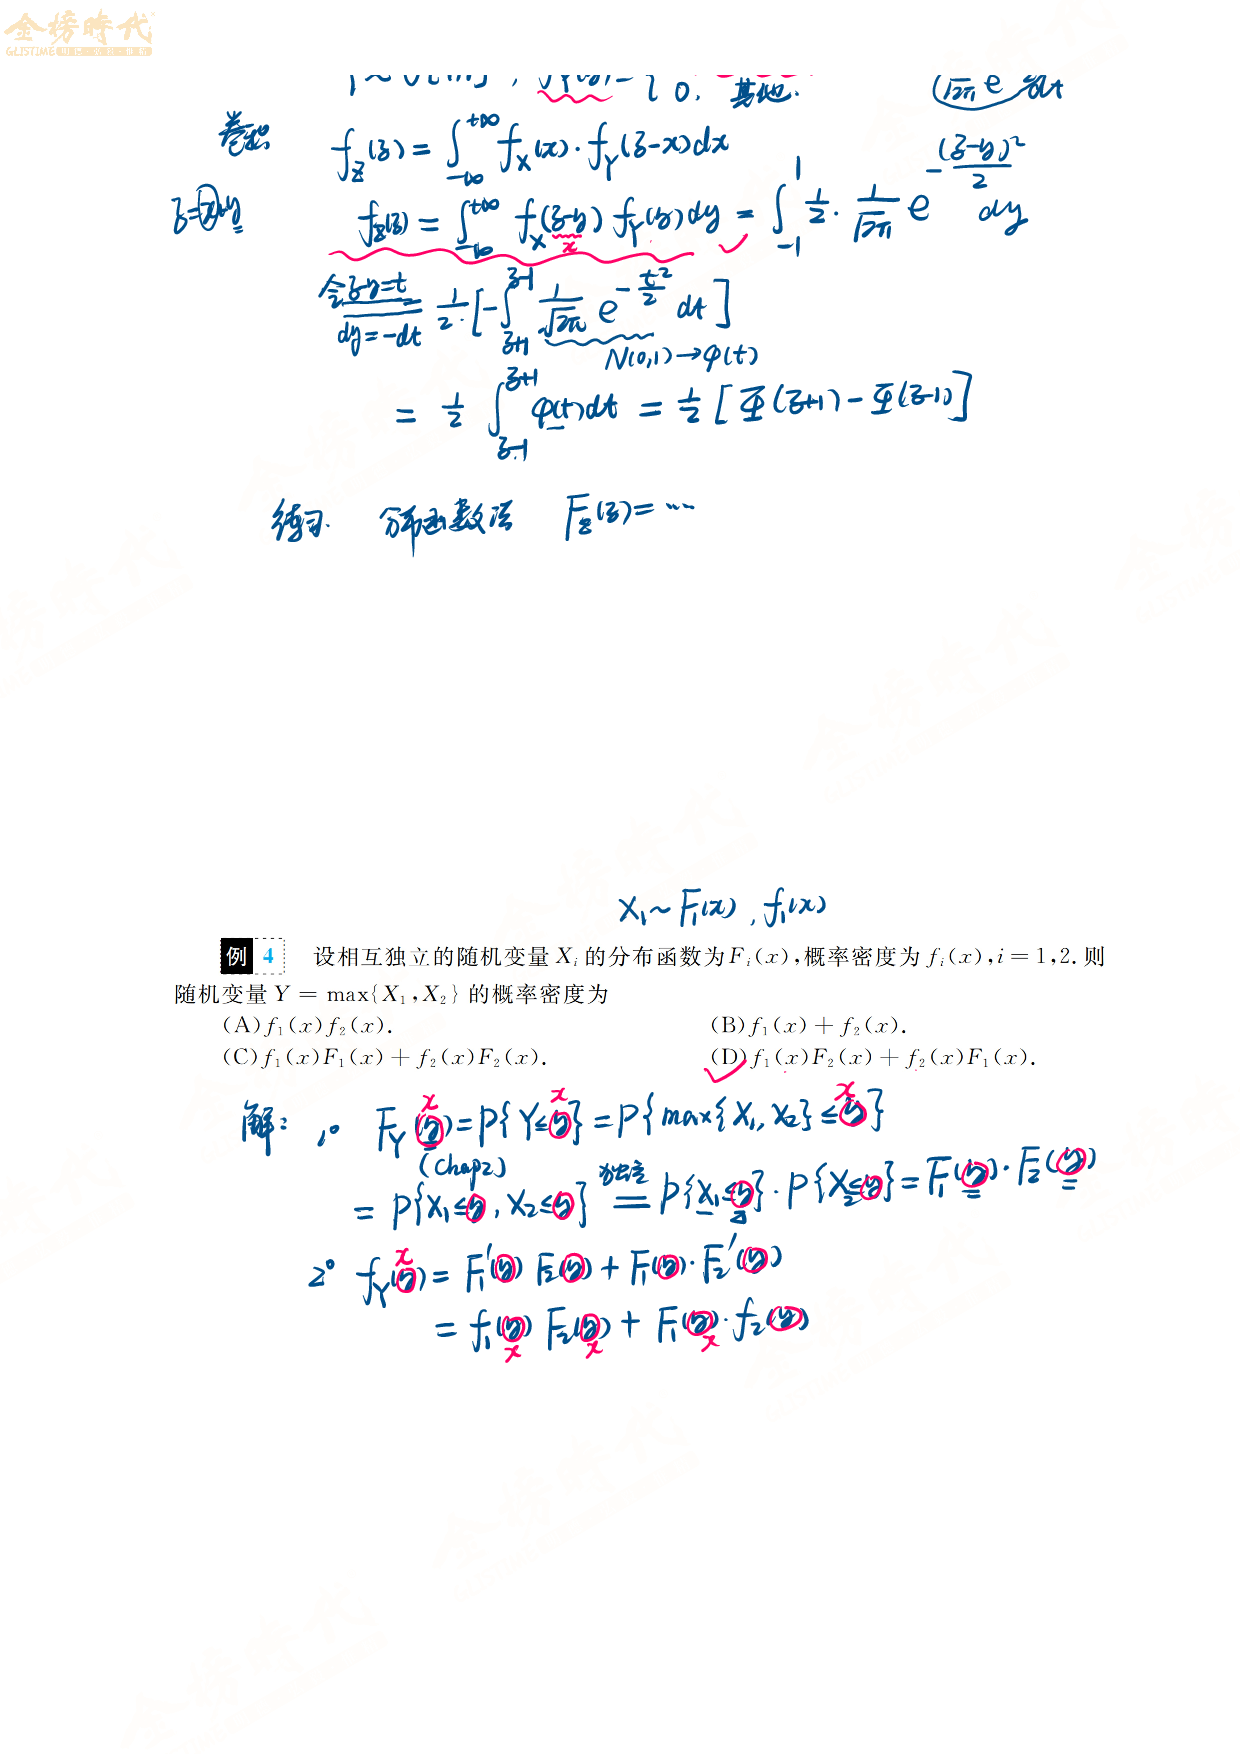 金榜時代
GLISTIME
0, 其他.
卷积 f_Z(z) = ∫_{-∞}^{+∞} f_X(x)·f_Y(z-x)dx
z=x+y f_Z(z) = ∫_{-∞}^{+∞} f_X(z-y) f_Y(y)dy = ∫_{-1}^{1} 1/2 · 1/√2π e^{-(z-y)²/2} dy
x
令z-y=t dy=-dt 1/2·[-∫_{z+1}^{z-1} 1/√2π e^{-t²/2} dt]
N(0,1)→φ(t)
= 1/2 ∫_{z-1}^{z+1} φ(t)dt = 1/2 [Φ(z+1)-Φ(z-1)]
练习. 分布函数法 F_Z(z)=…
X₁~F₁(x), f₁(x)
例 4 设相互独立的随机变量 Xᵢ 的分布函数为 Fᵢ(x),概率密度为 fᵢ(x),i = 1,2. 则
随机变量 Y = max{X₁,X₂} 的概率密度为
(A)f₁(x)f₂(x). (B)f₁(x) + f₂(x).
(C)f₁(x)F₁(x) + f₂(x)F₂(x). (D)f₁(x)F₂(x) + f₂(x)F₁(x).
x x x
解: 1° F_Y(y)=P{Y≤y}=P{max{X₁,X₂}≤y}
(chap2) 独立
= P{X₁≤y, X₂≤y} = P{X₁≤y}·P{X₂≤y}=F₁(y)·F₂(y)
x
2° f_Y(y)= F₁'(y) F₂(y)+F₁(y)·F₂'(y)
= f₁(y) F₂(y)+ F₁(y)·f₂(y)
x x x